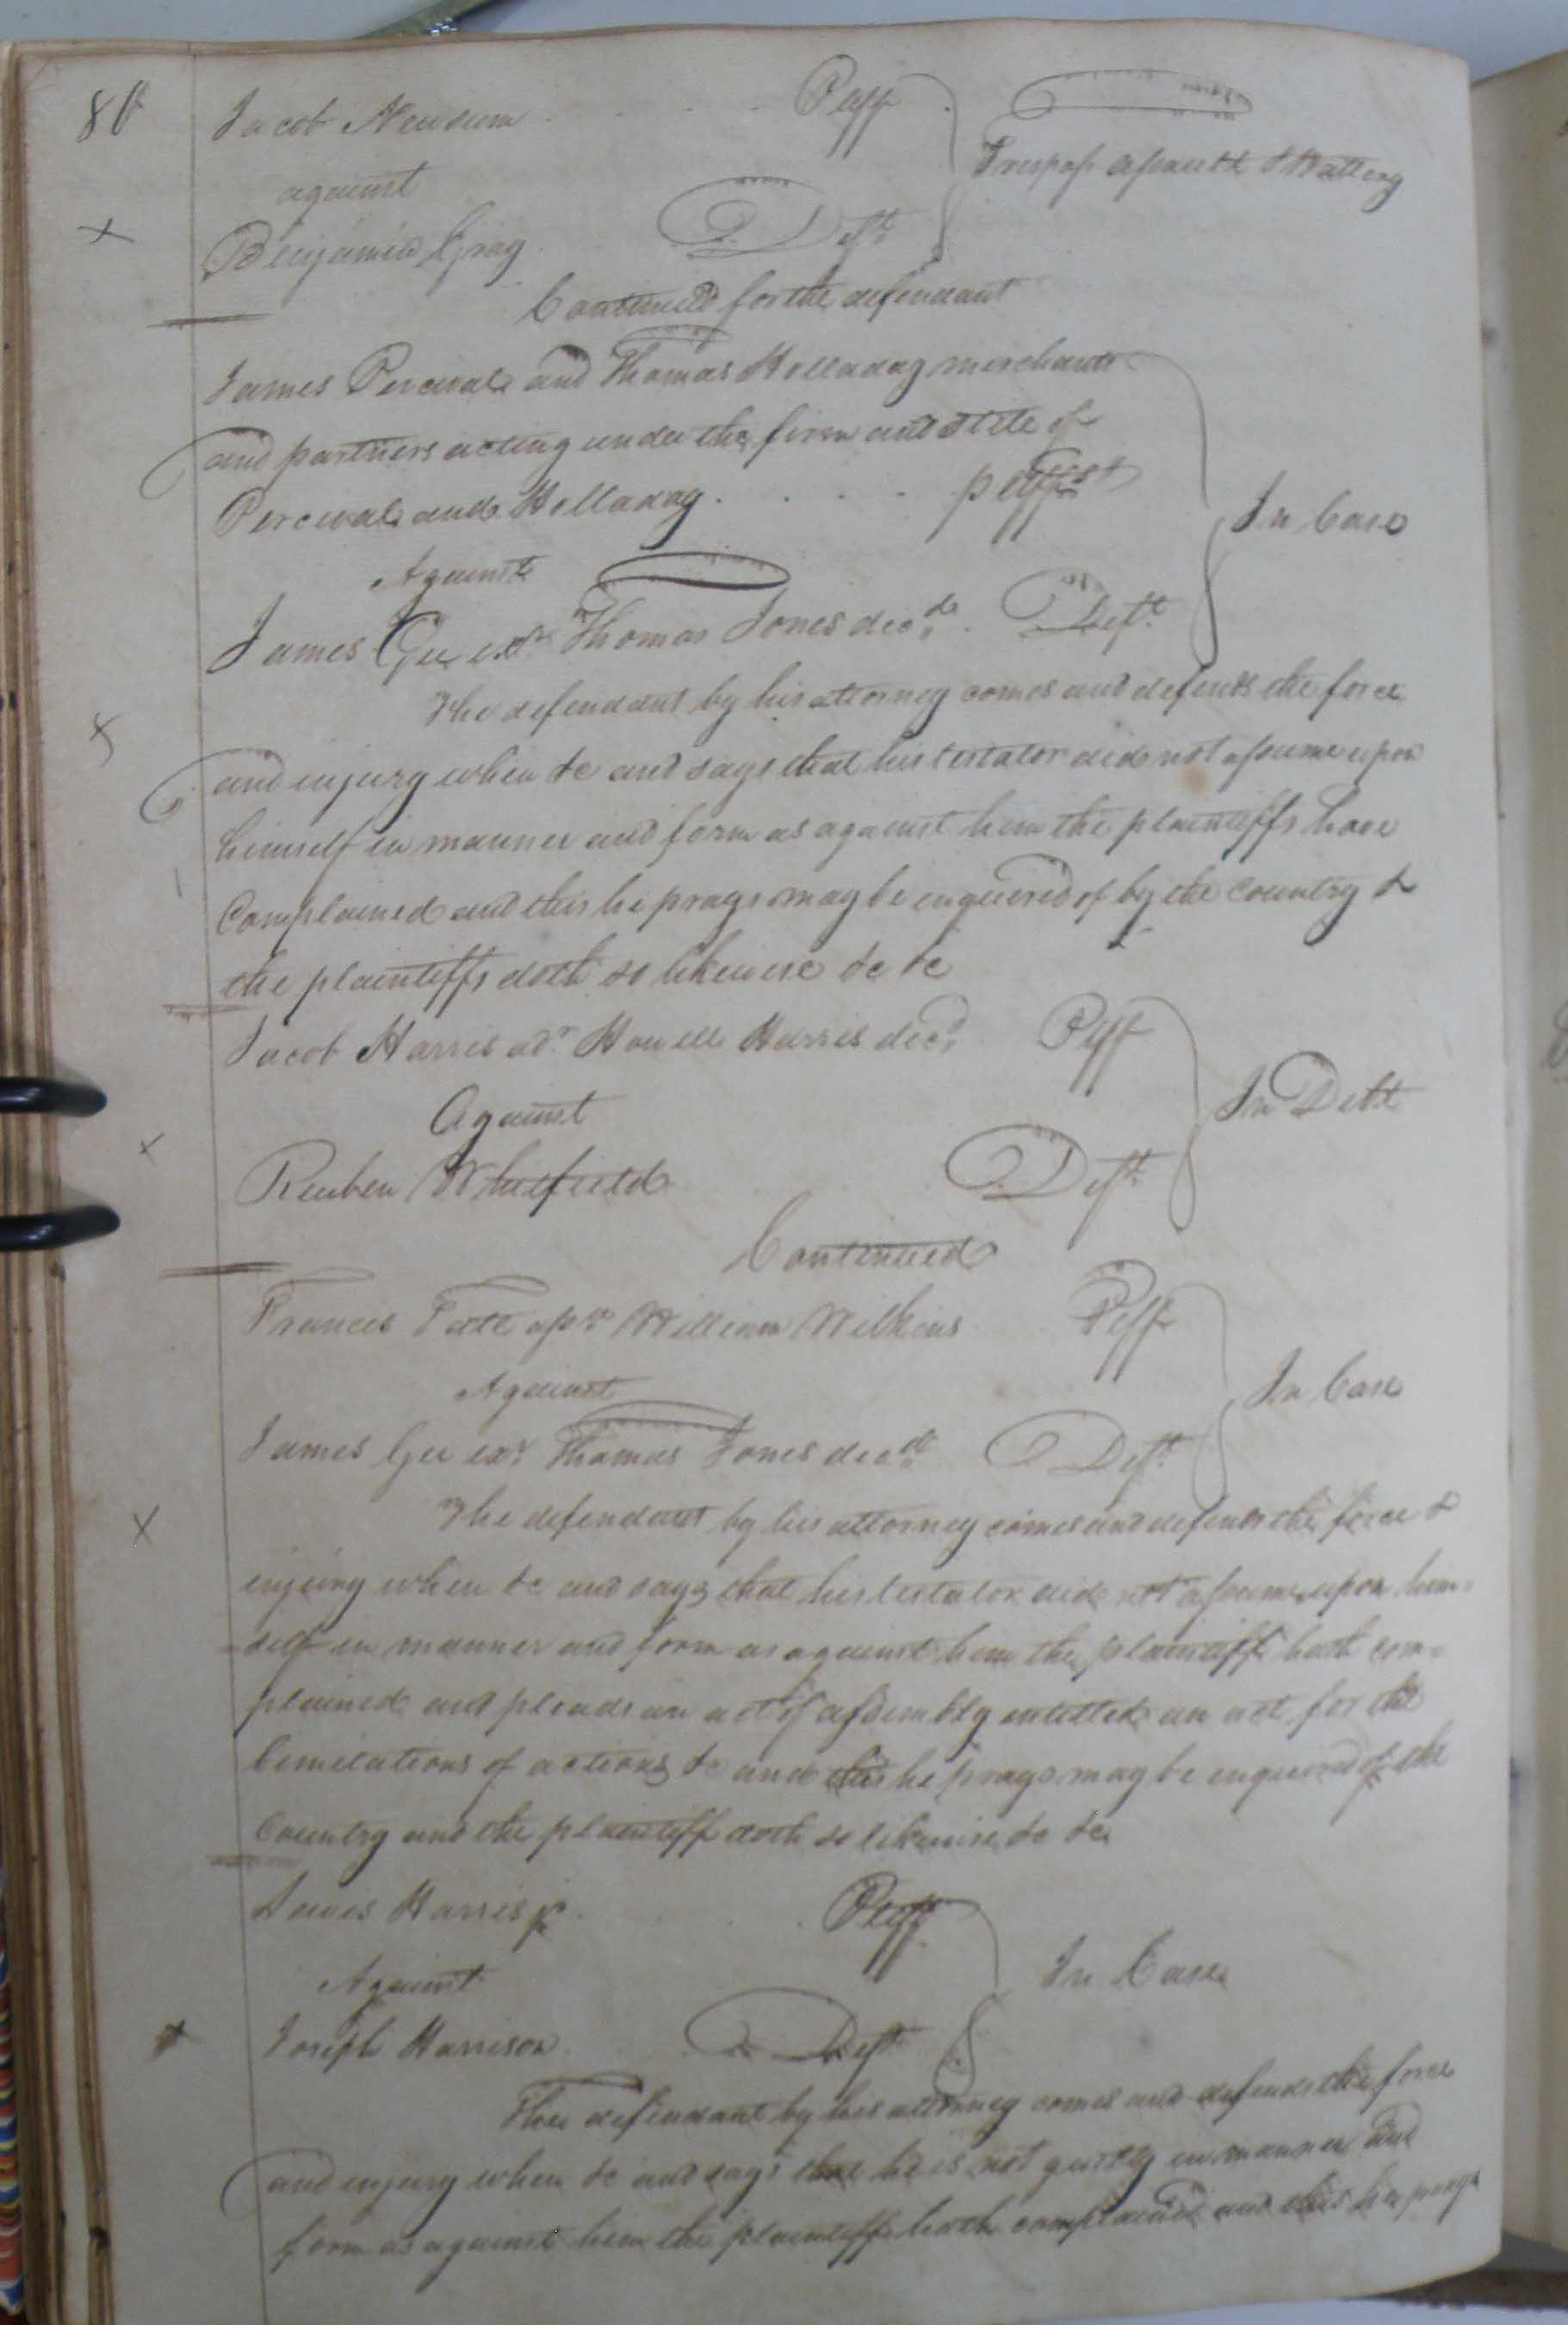 80
Jacob Newsum Plff
Trespass assault & Battery
against
Benjamin Gray Deft
Continued for the defendant
James Percival and Thomas Holladay merchants
and partners acting under the firm and stile of
Percival and Holladay plffs
In Case
Against
James Gee exr Thomas Jones decd. Deft
The defendant by his attorney comes and defends the force
and injury when &c and says that his testator did not assume upon
himself in manner and form as against him the plaintiffs have
Complained and this he prays may be enquired of by the Country &
the plaintiffs doth so likewise &c &c
Jacob Harris adr Howell Harris decd Plff
Against
In Debt
Reuben Whitfield Deft
Continued
Francis assee William Wilkins Plff
Against
In Case
James Gee exr Thomas Jones decd Deft
The defendant by his attorney comes and defends the force &
injury when &c and says that his testator did not assume upon him=
=self in manner and form as against him the plaintiff hath com=
plained and pleads an act of assembly intitled an act for the
limitations of actions &c and this he prays may be enquired of the
Country and the plaintiff doth so likewise &c &c
Lewis Harris jr Plff
In Case
Against
Joseph Harrison Deft
The defendant by his attorney comes and defends the force
and injury when &c and says that he is not guilty in manner and
form as against him the plaintiff hath complained and this he prays